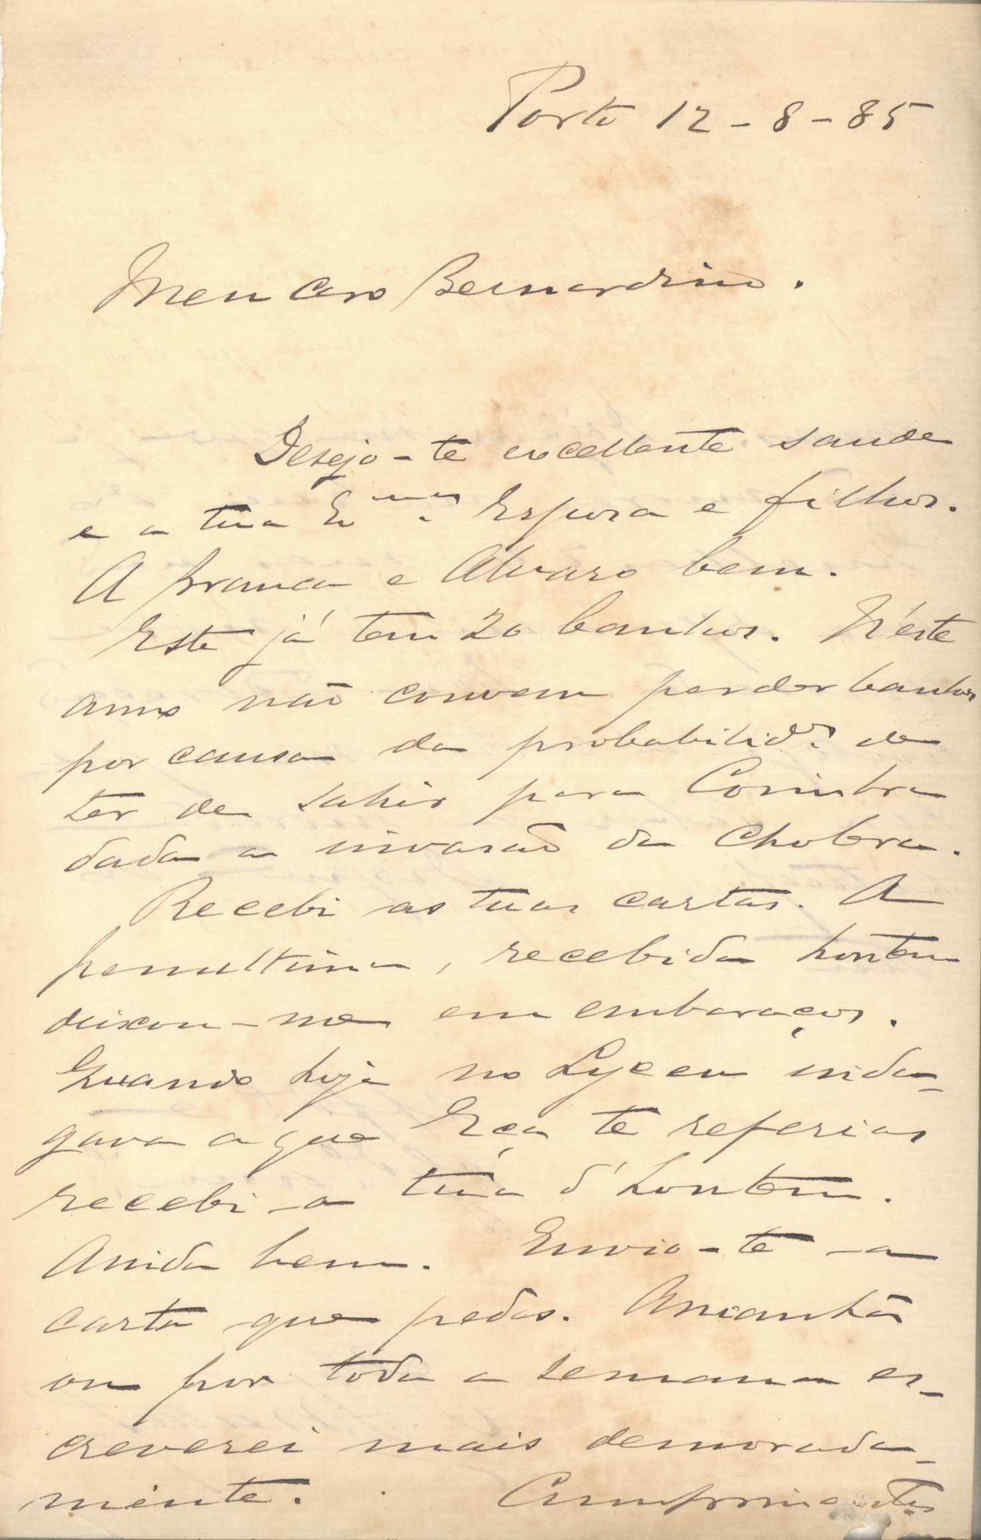 Porto 12-8-85
Meu caro Bernardino.
Desejo-te excellente saude
e a tua Ex.ma Esposa e filhos.
A Branca e Alvaro bem.
Este já tem 20 banhos. N'este
anno não convem perder banhos
por causa da probabilid.e de
ter de sahir para Coimbra
dada a invasão da Cholera.
Recebi as tuas cartas. A
penultima, recebida hontem
deixou-me em embaraços.
Quando hoje no Lyceu inda-
gava a que Eça te referias
recebi a tua d'hontem.
Ainda bem. Envio-te a
carta que pedes. Amanhã
ou por toda a semana es-
creverei mais demorada-
mente. Cumprimentos